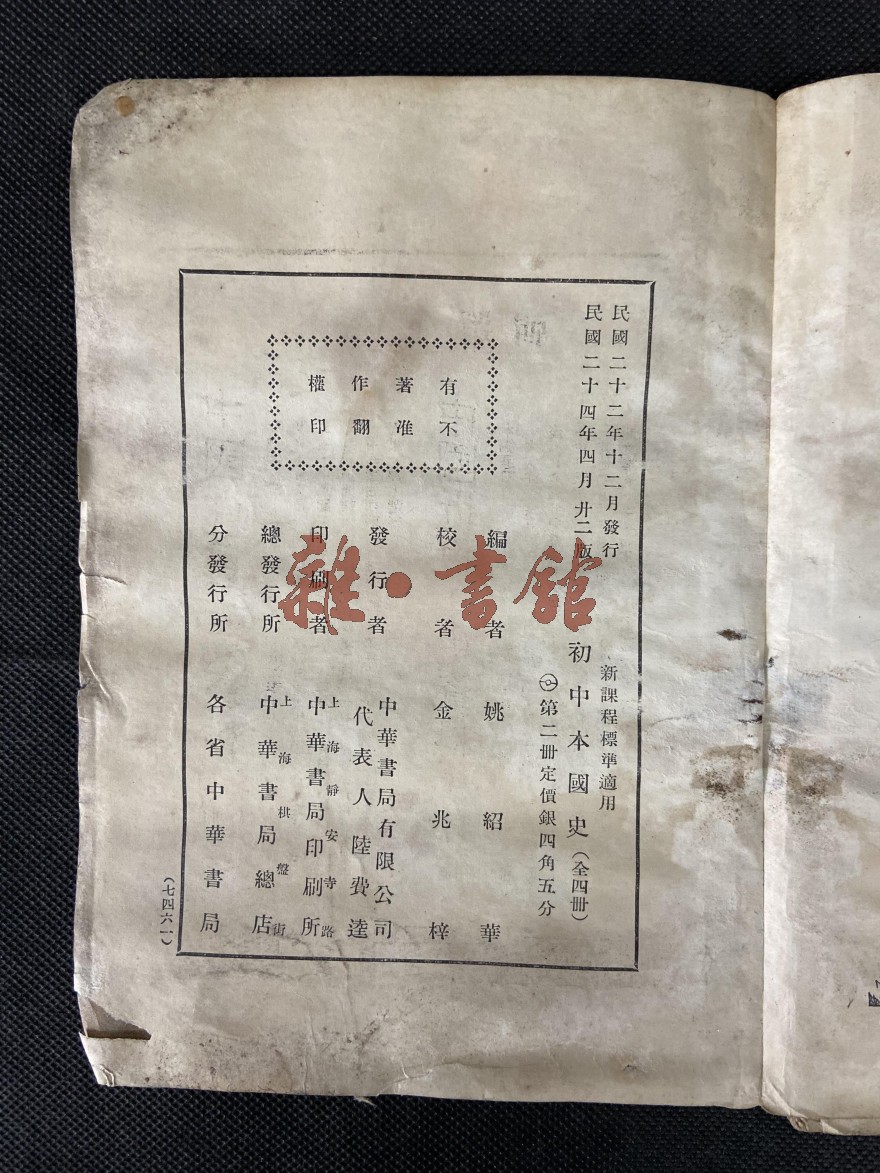 民國二十二年十二月發行
民國二十四年四月廿二版
新課程標準適用
初中本國史（全四冊）
第二冊定價銀四角五分
有著作權
不准翻印
編者 姚紹華
校者 金兆梓
發行者 中華書局有限公司
代表人 陸費逵
印刷者 上海靜安寺路
中華書局印刷所
總發行所 上海棋盤街
中華書局總店
分發行所 各省中華書局
（七四六一）
雜·書館